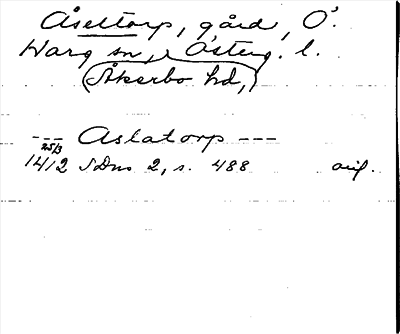 Åsettorp, gård, Ö.
Warg sn, Österg. l.
(Åkerbo hd,)
--- Aslatorp ---
25/3
1412 SDns 2, s. 488 avskr.